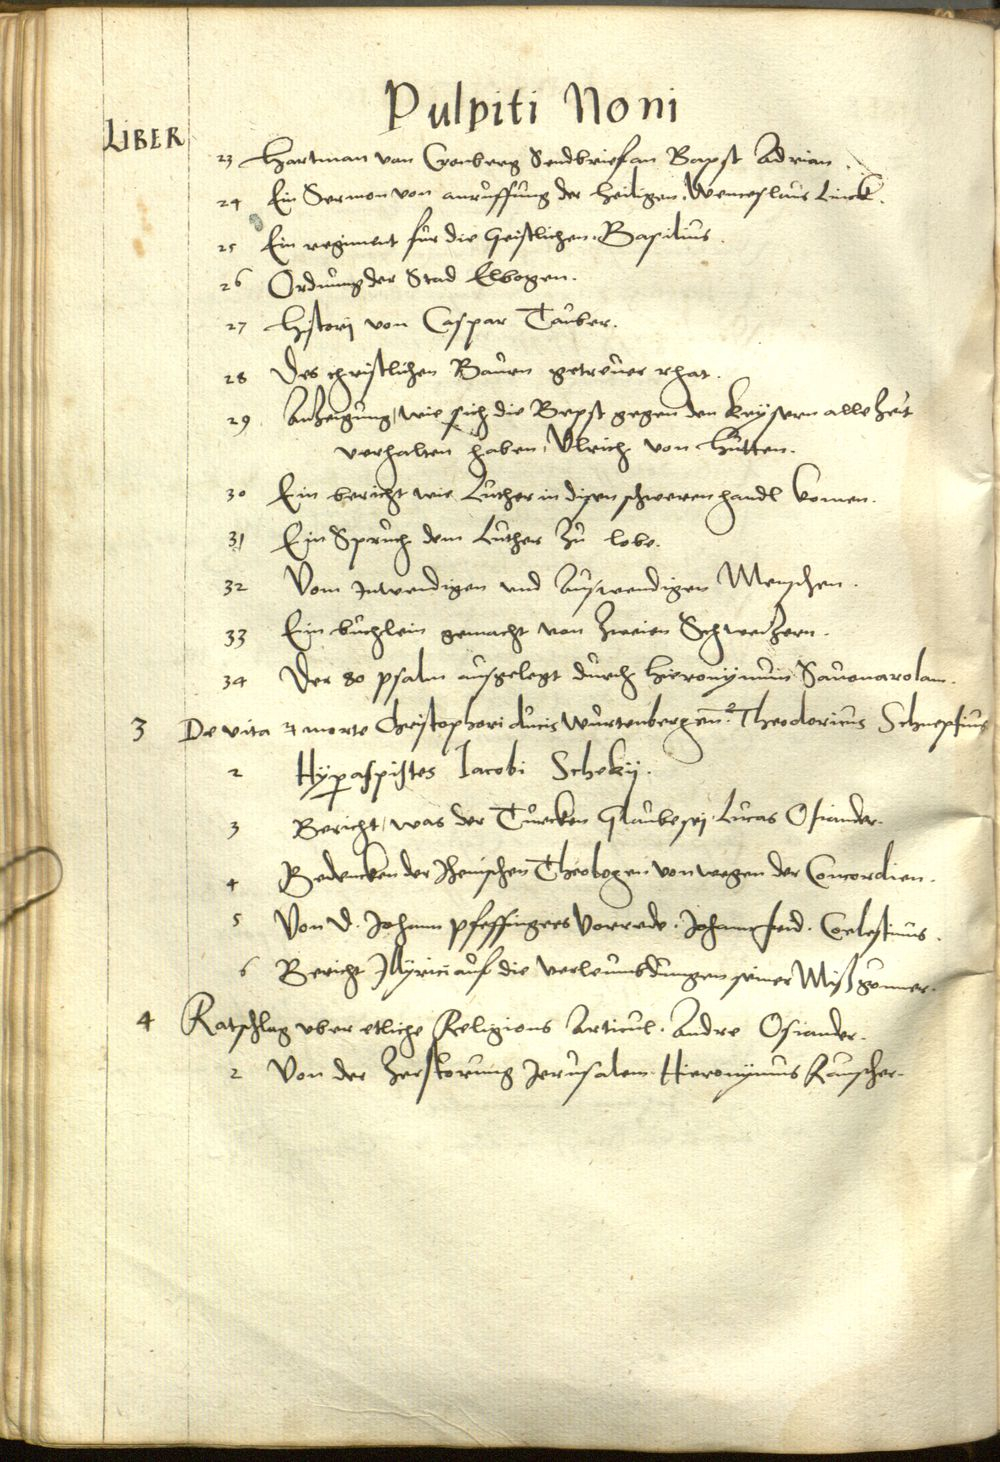 Pulpiti Noni
LIBER
23 Hartman von Cronberg Sendbrief an Bapst Adrian.
24 Ein Sermon von anrůffung der Heiligen. Wenceslaus Linck.
25 Ein regiment für die Geistlichen. Basilius.
26 Ordnung der Stad Elbogen.
27 Histori von Caspar Tauber.
28 Des christlichen Bauren getrewer rhat.
29 Anzeigung, wie sich die Bepst gegen den Keysern alle Zeit
verhalten haben, Vlrich von Hutten.
30 Ein bericht wie Luther in disen schweren handl komen.
31 Ein Spruch dem Luther zu lobe.
32 Vom Inwendigen und Auswendigen Menschen.
33 Ein büchlein gemacht von zweien Schweitzern.
34 Der 80 psalm ausgelegt durch Hieronymum Sauonarolam.
3 De vita et morte Christophori ducis Wurtenbergen. Theodoricus Schnepfius
2 Hyperaspistes Iacobi Schekij.
3 Bericht, was der Türcken Glaube sej. Lucas Osiander.
4 Bedencken der Theologen von wegen der Concordien.
5 Von D. Johann Pfeffingers Vorrede. Johan frid. Coelestinus.
6 Bericht Illyrici auf die verleumbdungen seiner Mißgönner.
4 Ratschlag vber etliche Religions Articul. Andre Osiander.
2 Von der Zerstorung Jerusalem. Hieronymus Rauscher.